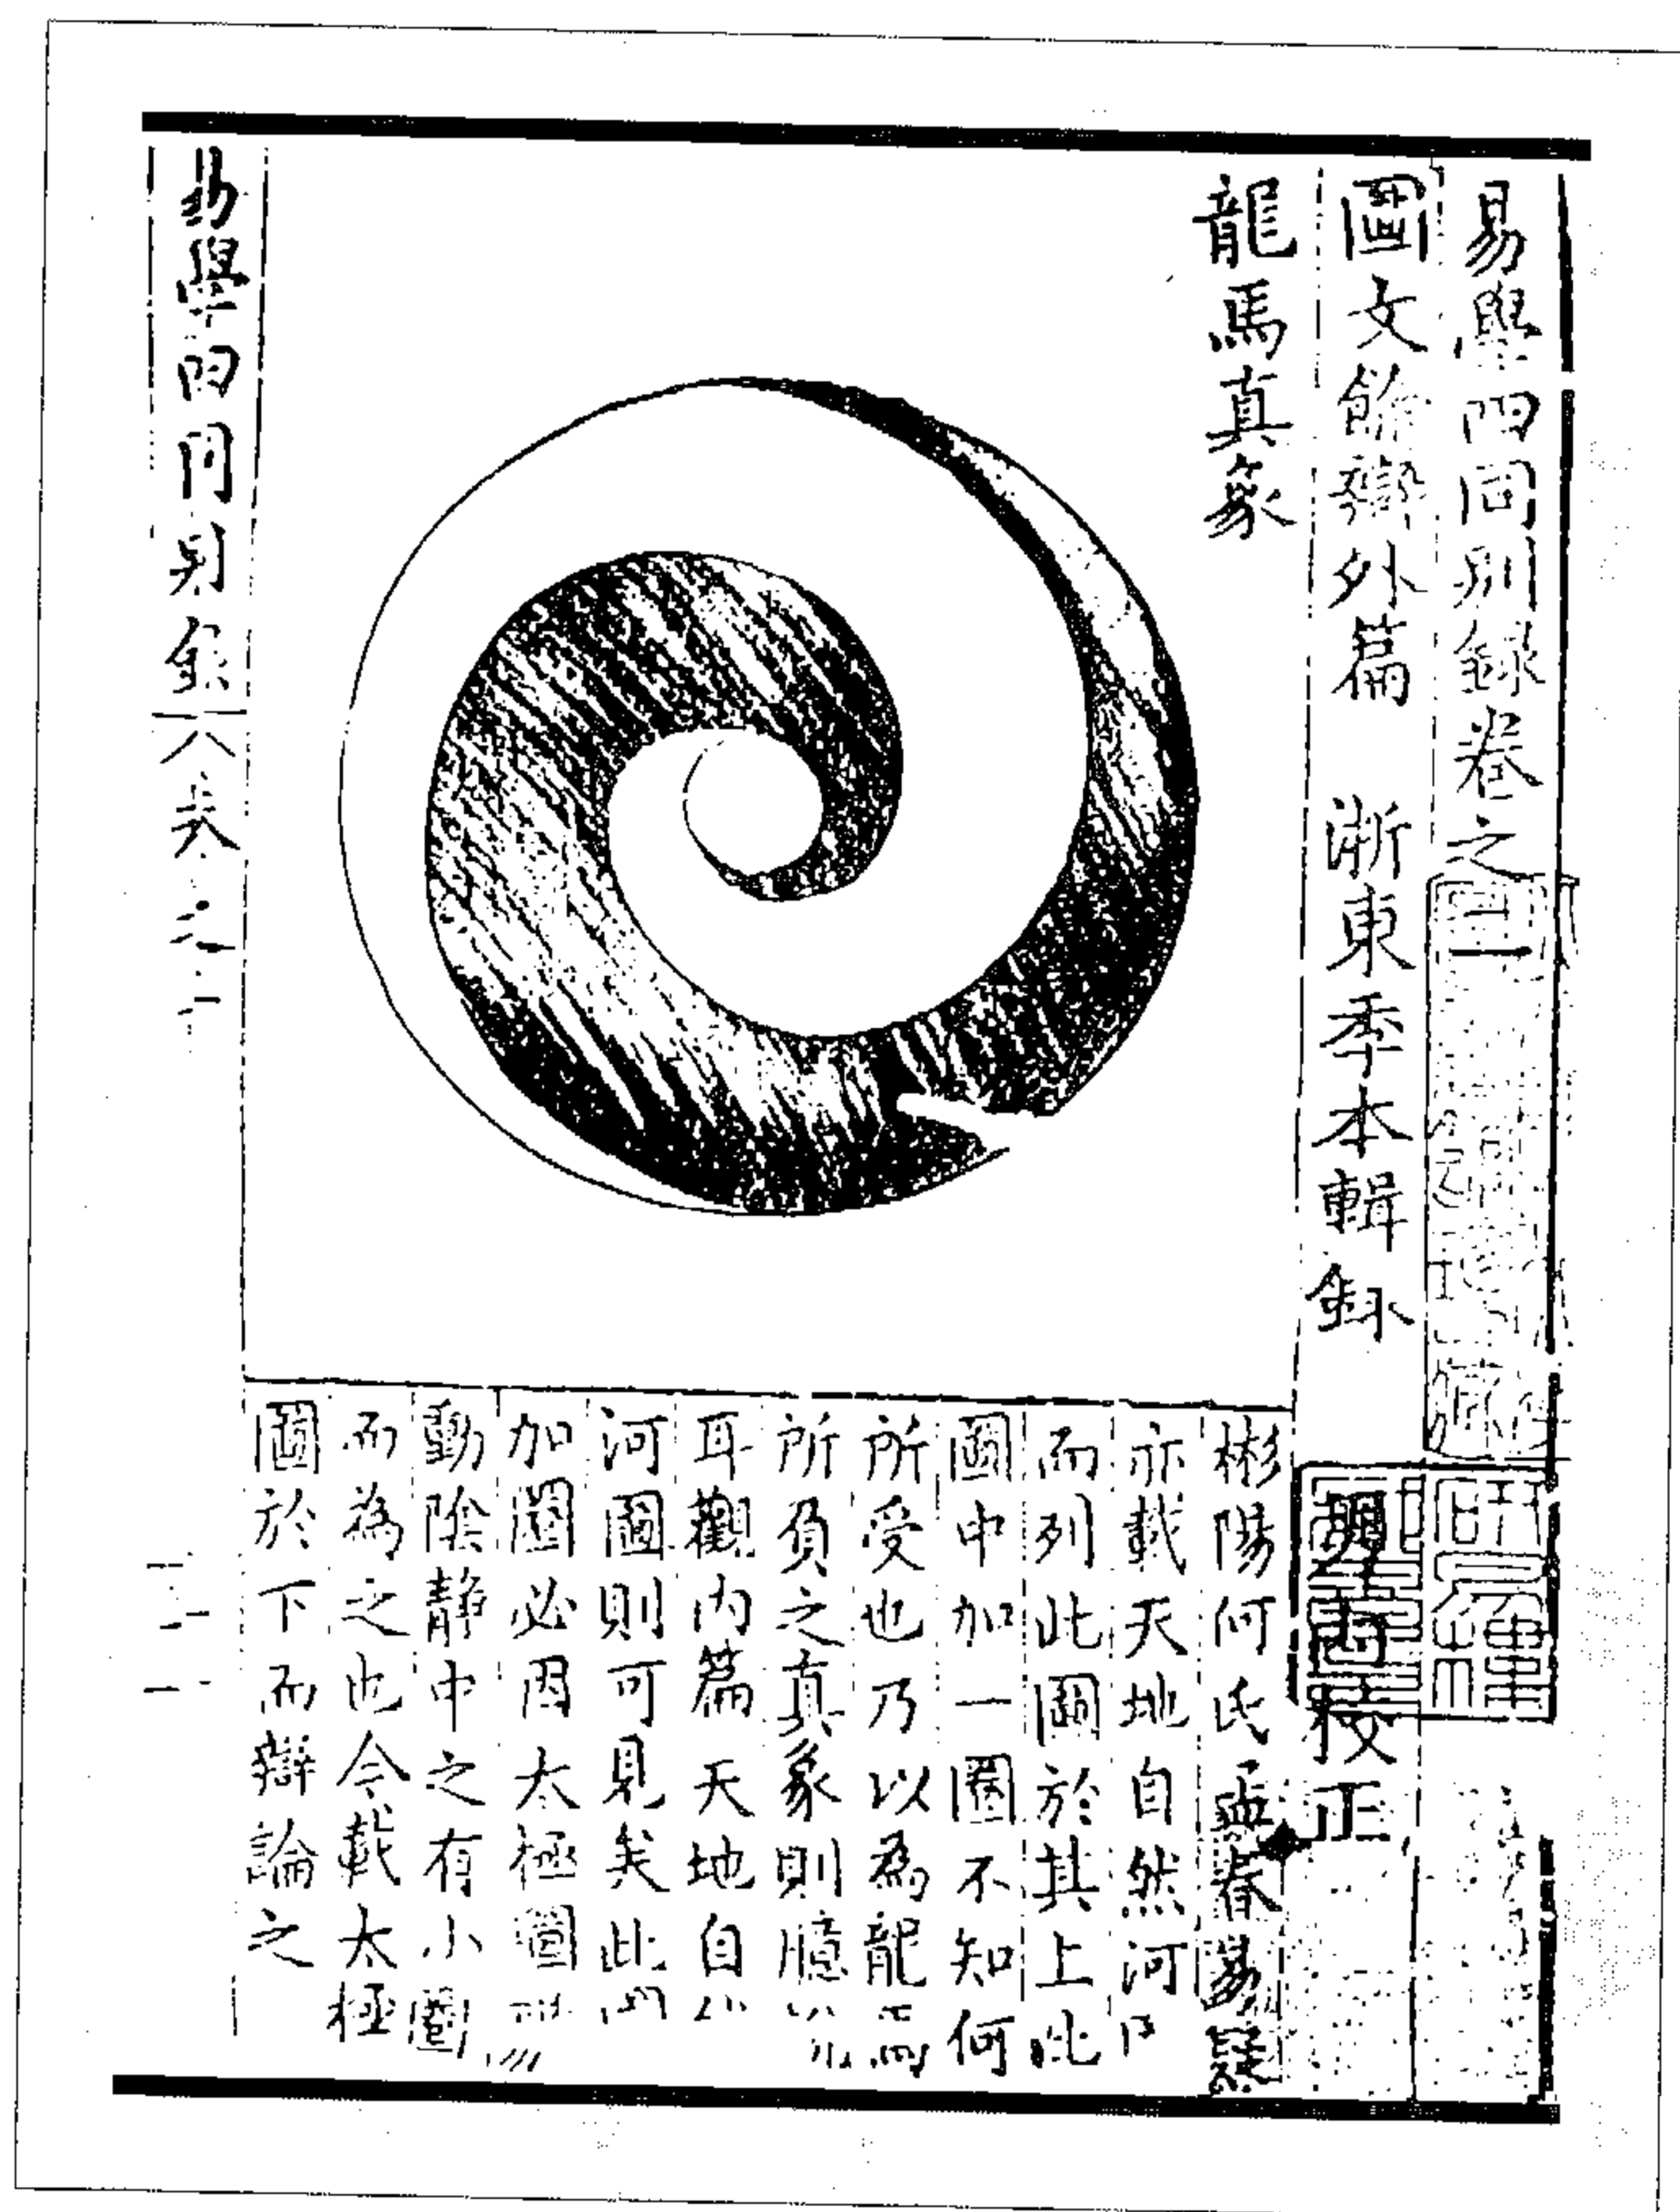 易學四同別録卷之二
圖文餘辯外篇　浙東季本輯録
校正
龍馬真象
彬陽何氏孟春易疑
亦載天地自然河
而列此圖於其上此
圖中加一圈不知何
所受也乃以為龍馬
所負之真象則臆
耳觀内篇天地自
河圖則可見矣此
加圈必因太極圖
動陰静中之有小圈
而為之也今載太極
圖於下而辯論之
易學四同別録